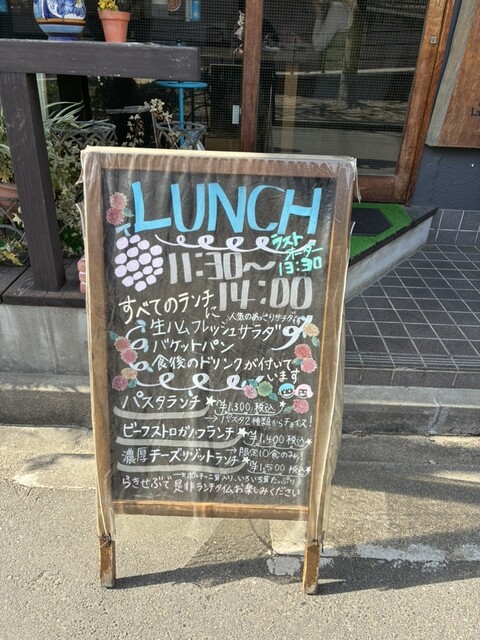 LUNCH
11:30〜
14:00
ラスト
オーダー
13:30
すべてのランチに
人気のあっさりサラダです
生ハムフレッシュサラダ
バケットパン
食後のドリンクが付いて
います
パスタランチ ¥1.300 税込
→パスタ2種類からチョイス!
ビーフストロガノフランチ ¥1.400 税込
→限定10食のみ!
濃厚チーズリゾットランチ ¥1,500 税込
→ポルチーニ茸入り、いろいろ茸たっぷり
らきせぶで是非ランチタイムお楽しみください